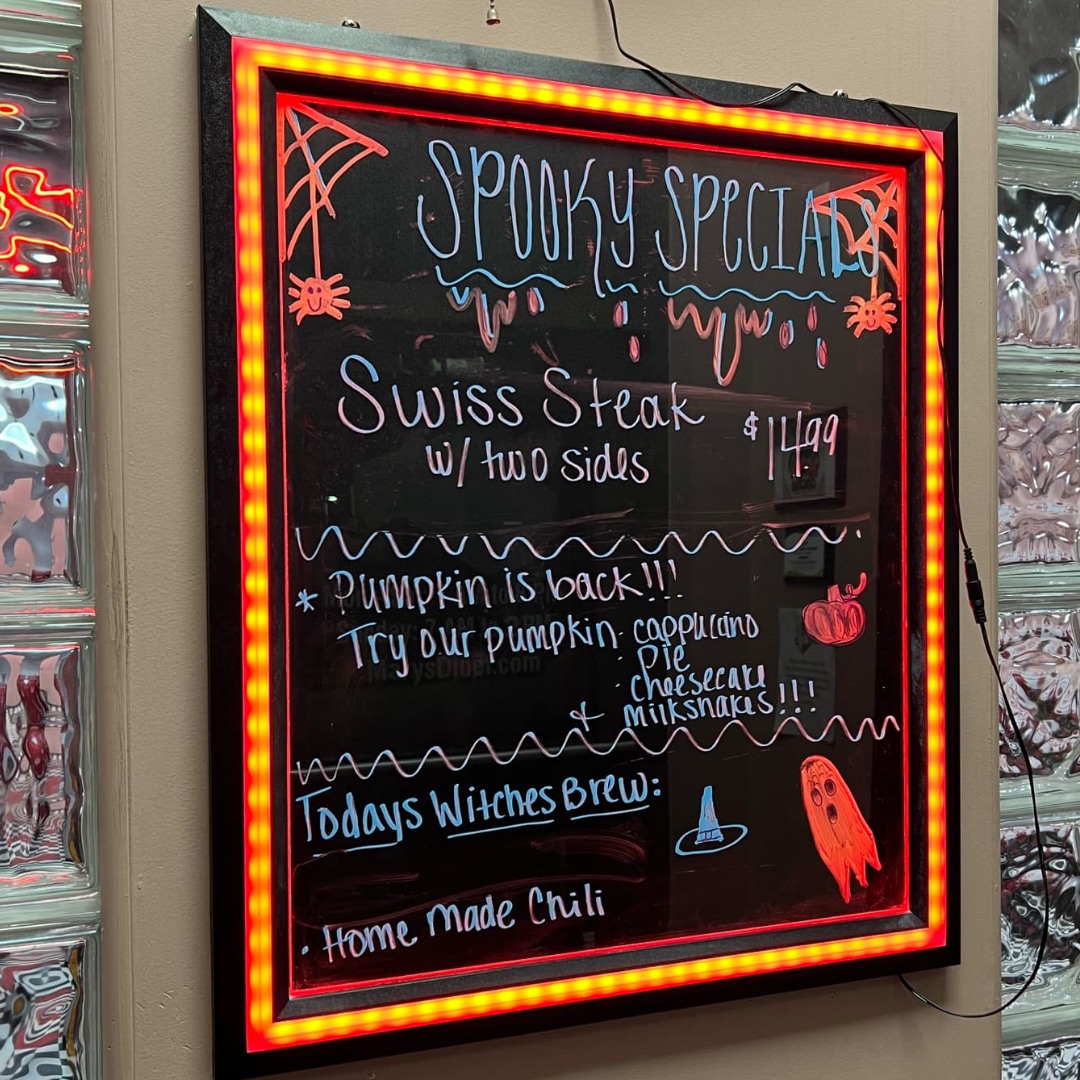 SPOOKY SPECIALS
Swiss Steak
w/ two sides
$14.99
* Pumpkin is back!!!
Try our pumpkin · cappuccino
· Pie
· cheesecake
+ milkshakes!!!
Todays Witches Brew:
· Home Made Chili